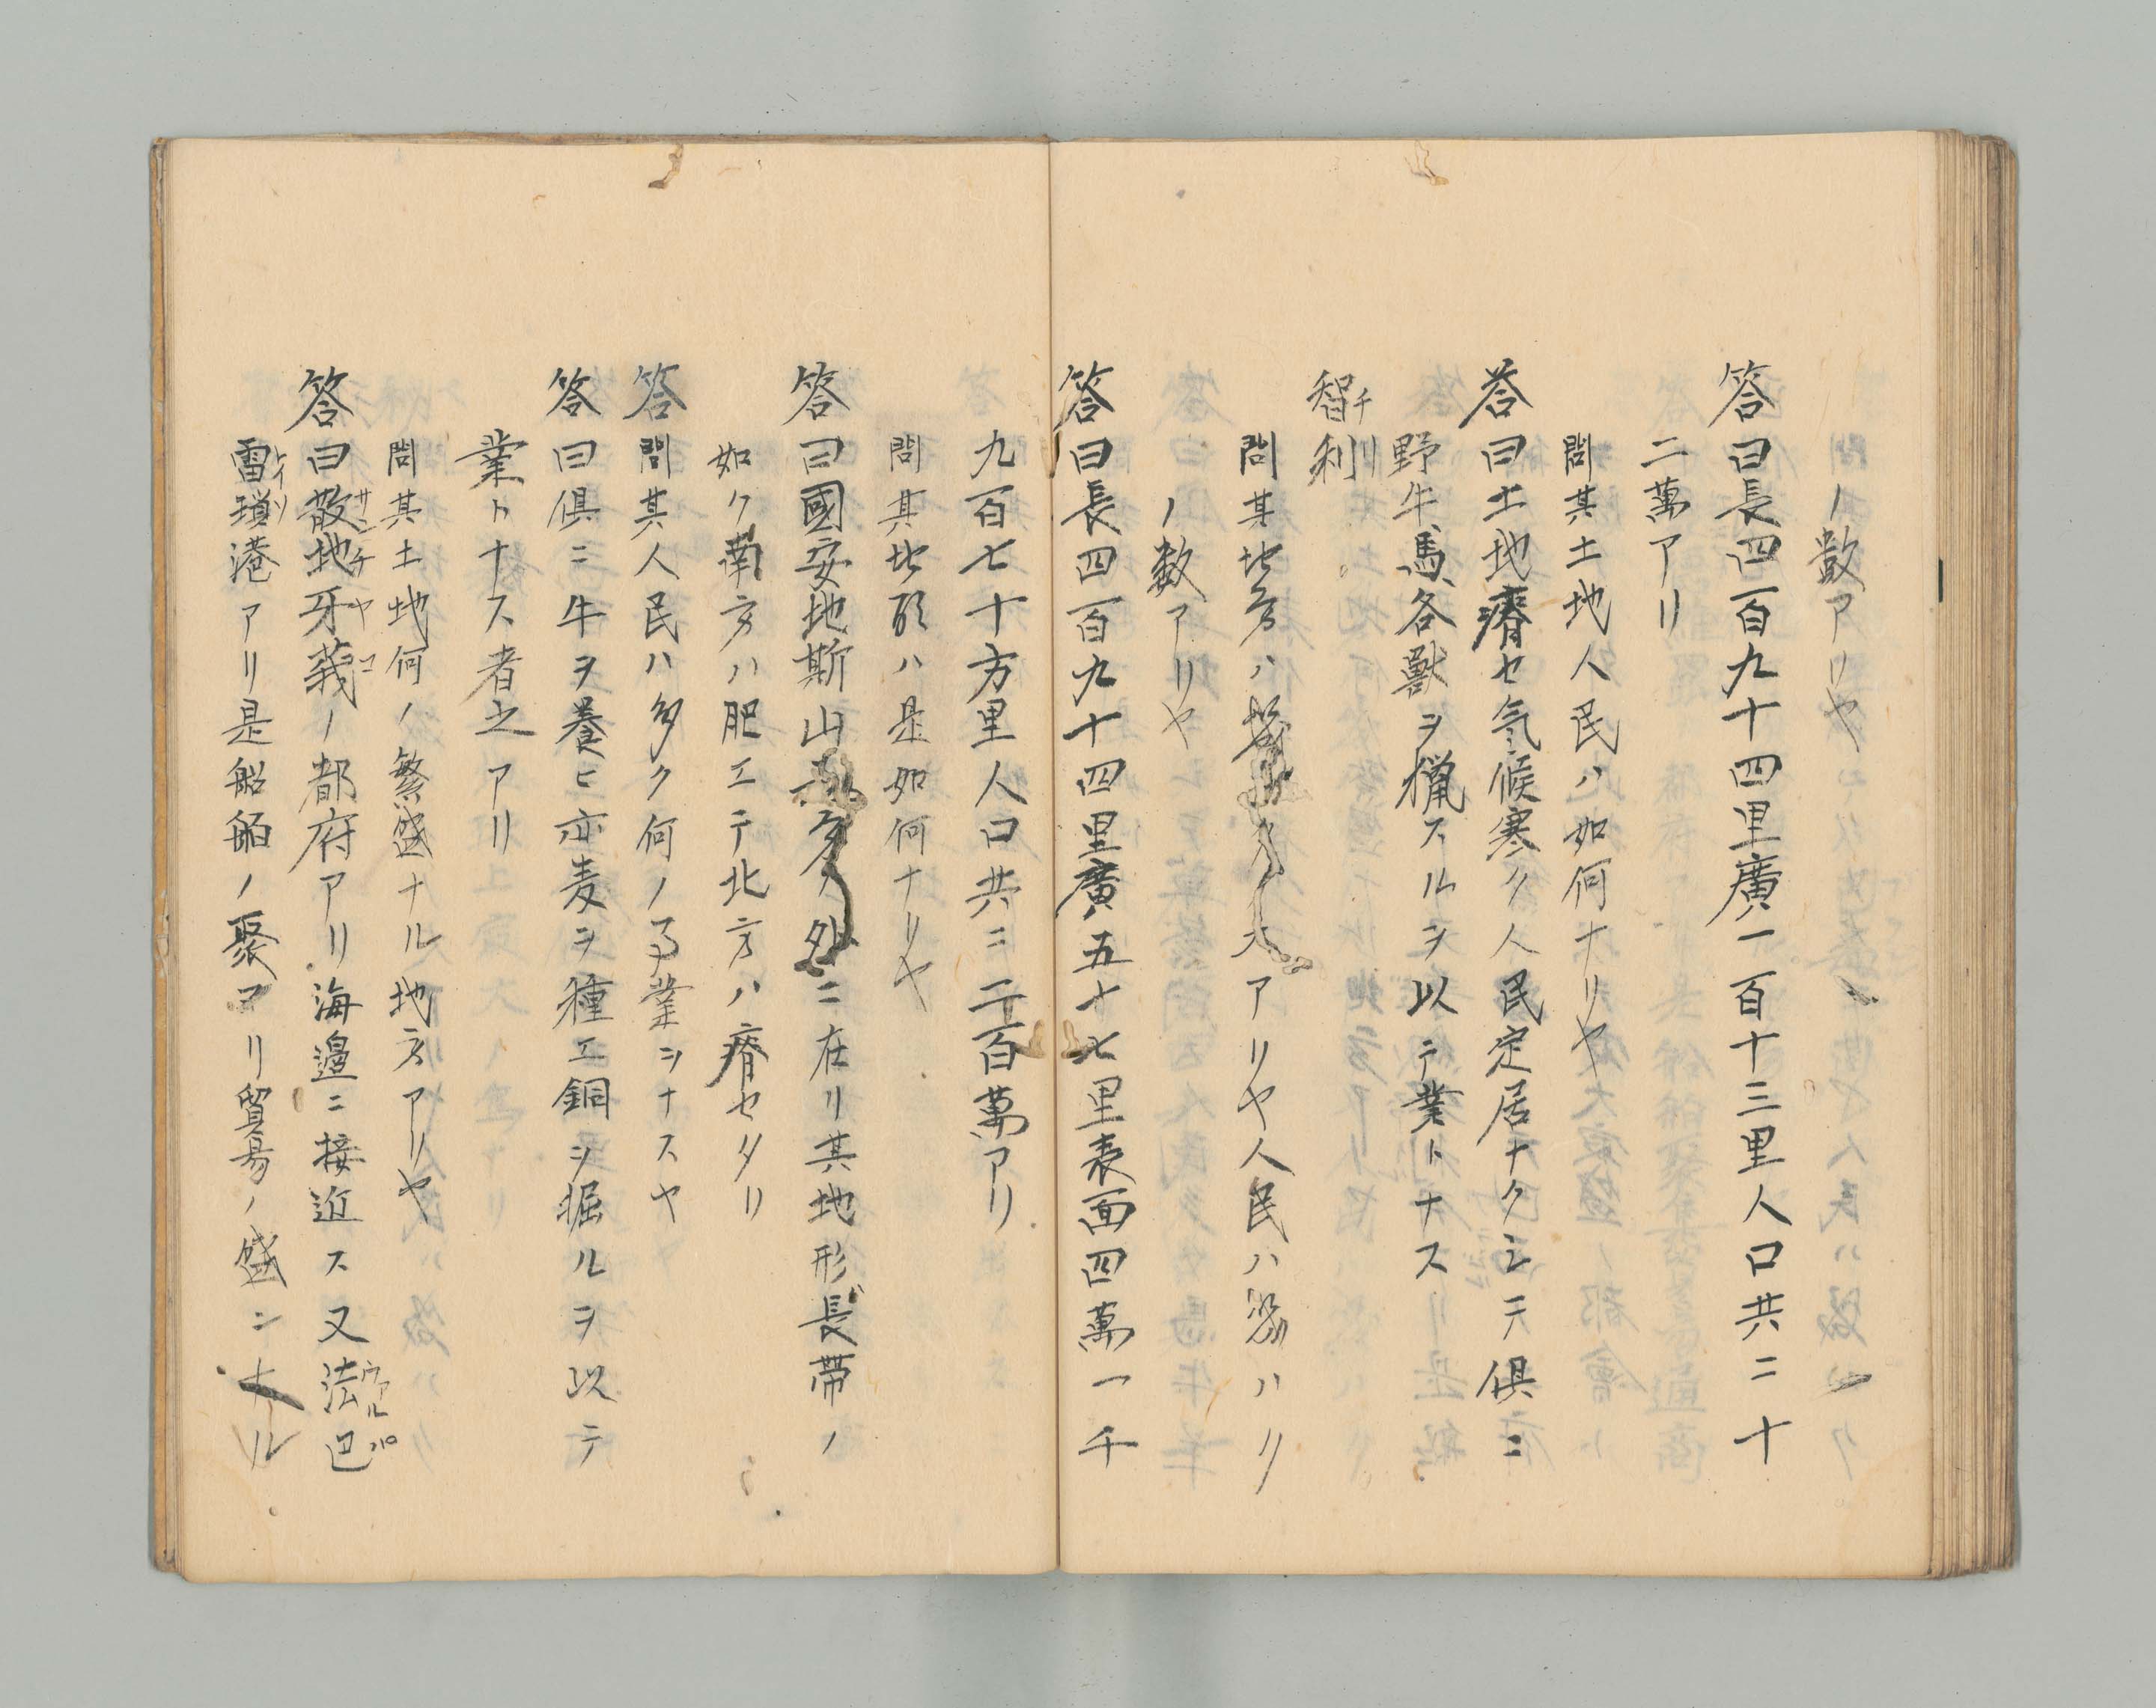 ノ数アリヤ
答曰長四百九十四里廣一百十三里人口共二十
二萬アリ
問其土地人民ハ如何ナリヤ
答曰土地瘠セ気候寒ク人民定居ナクシテ倶ニ
野牛馬各獣ヲ猟スルヲ以テ業トナス
智利 チリ
問其地方ハ幾ノ大アリヤ人民ハ幾ハク
ノ数アリヤ
答曰長四百九十四里廣五十七里表面四萬一千
九百七十方里人口共ニ二百萬アリ
問其地形ハ是如何ナリヤ
答曰國安地斯山ノ外ニ在リ其地形長帯ノ
如ク南方ハ肥エテ北方ハ瘠セタリ
答問其人民ハ多ク何ノ事業ヲナスヤ
答曰倶ニ牛ヲ養ヒ亦麦ヲ種エ銅ヲ掘ルヲ以テ
業トナス者之アリ
問其土地何ノ繁盛ナル地方アリヤ
答曰散地牙義 サンチヤコ ノ都府アリ海邉ニ接近ス又法巴 ウアルパロ
雷瑣 レイソ 港アリ是船舶ノ聚マリ貿易ノ盛ンナル